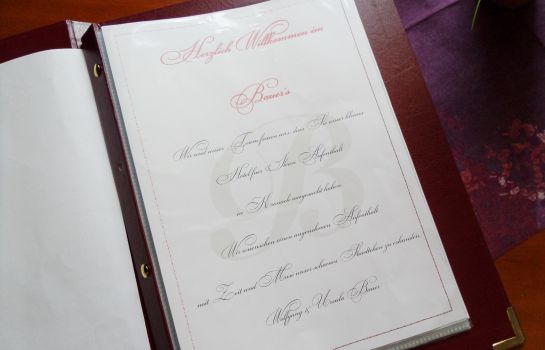 Herzlich Willkommen im
Bauer's
Wir und unser Team freuen uns, dass Sie unser kleines
Hotel fuer Ihren Aufenthalt
in Kronach ausgesucht haben
Wir wuenschen einen angenehmen Aufenthalt
mit Zeit und Muse unser schoenes Staedtchen zu erkunden
Wolfgang & Ursula Bauer
B